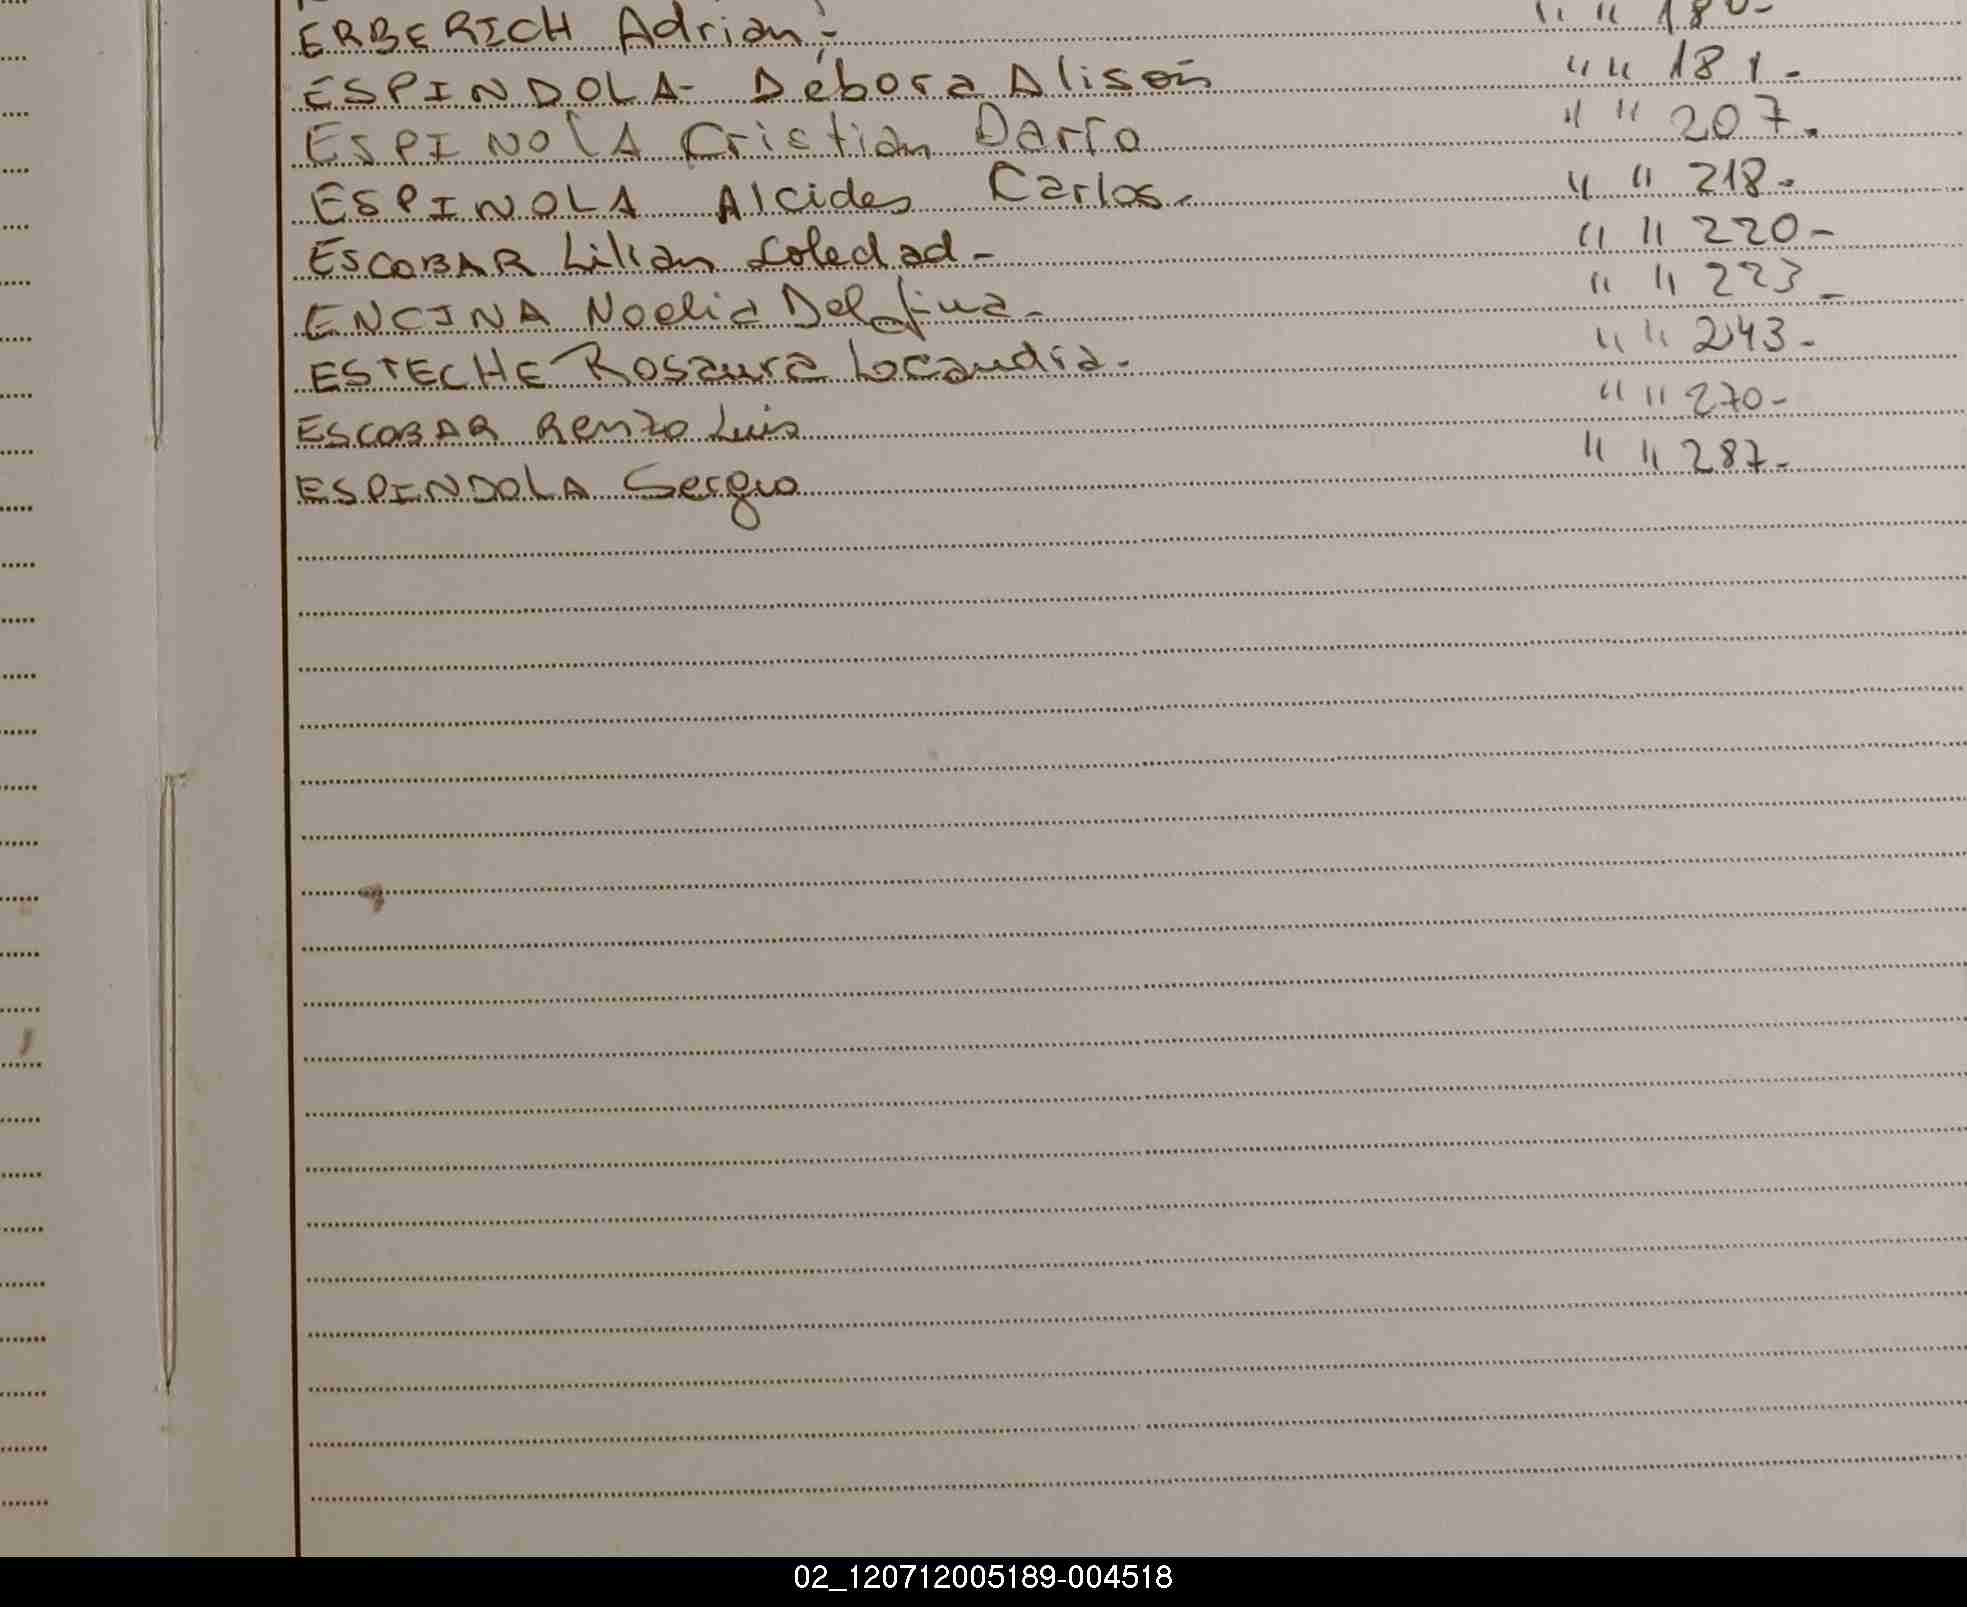 ERBERICH Adrian.- " " 180-
ESPINDOLA- Débora Alison " " 181.-
ESPINOLA Cristian Darío " " 207.
ESPINOLA Alcides Carlos.- " " 218.-
ESCOBAR Lilian Soledad - " " 220-
ENCINA Noelia Delfina.- " " 223-
ESTECHE Rosaura Locandra.- " " 243-
ESCOBAR Renzo Luis " " 270-
ESPINDOLA Sergio " " 287-
02_120712005189-004518